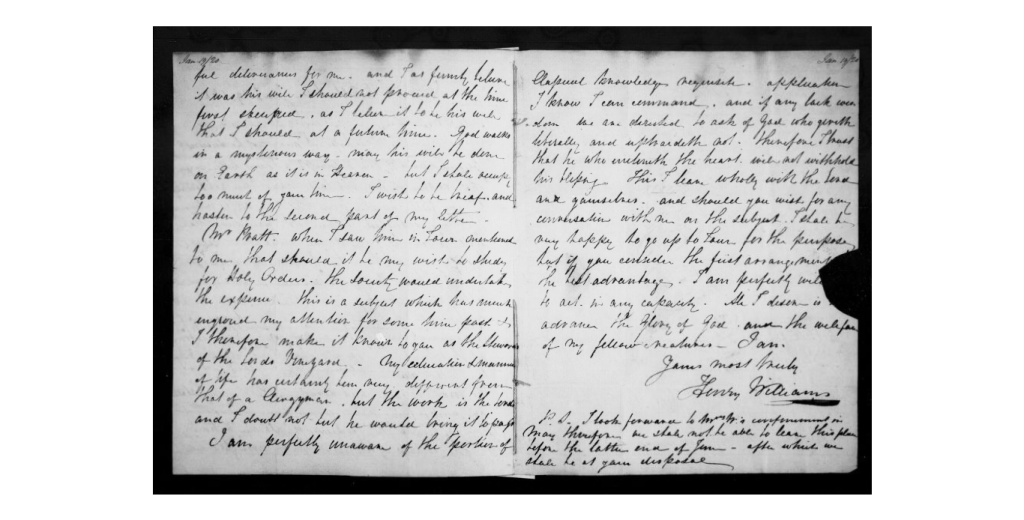 Jan 19/20
ful deliverances for me. and I as firmly believe
it was his will I should not proceed at the time
first , as I believe it to be his will
that I should at a future time. God works
in a mysterious way. may his will be done
on Earth as it is in Heaven – but I shall occupy
too much of your time. I wish to be brief and
hasten to the second part of my letter.
Mr Pratt. when I saw him in Town mentioned
to me that should it be my wish to study
for Holy Orders. the Society would undertake
the expense. this is a subject which has much
engrossed my attention for some time past
I therefore make it known to you as the Stewards
of the Lords Vineyard. – My education & manner
of life has certainly been very different from
that of a Clergyman. but the work is the Lords
and I doubt not but he would bring it to pass
I am perfectly unaware of the portion of
Jan 19/20
Classical knowledge requisite. application
I know I can command. and if any lack wis
dom we are directed to ask of God who giveth
liberally and upbraideth not. therefore I trust
that he who inclineth the heart. will not withhold
his blessing This I leave wholly with the Lord
and yourselves. and should you wish for any
conversation with me on the subject. I shall be
very happy to go up to Town for the purpose
but if you consider the first arrangement
the best advantage. I am perfectly
to act in any capacity. All I desire is
advance the Glory of God and the welfare
of my fellow creatures – I am.
Yours most truly
Henry Williams
P.S. I look forward to Mrs W's confinement in
May therefore we shall not be able to leave this place
before the latter end of June – after which we
shall be at your disposal